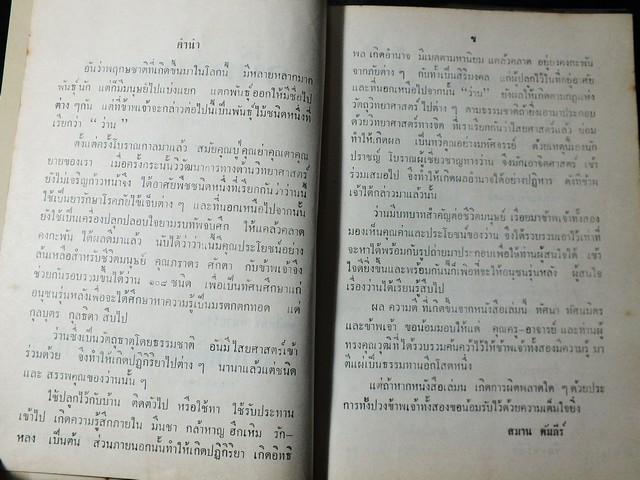 คำนำ
อันว่าพฤกษชาติที่เกิดขึ้นมาในโลกนี้ มีหลายหลากมาก
พันธุ์นัก แต่ก็มีมนุษย์ไปแบ่งแยก แตกพันธุ์ออกให้มีชื่อไป
ต่าง ๆ กัน แต่ที่ข้าพเจ้าจะกล่าวต่อไปนี้เป็นพันธุ์ไม้ชนิดหนึ่งที่
เรียกว่า “ ว่าน ”
ตั้งแต่ครั้งโบราณกาลมาแล้ว สมัยคุณปู่คุณย่าคุณตาคุณ
ยายของเรา เมื่อครั้งกระนั้นวิวัฒนาการทางด้านวิทยาศาสตร์
ยังไม่เจริญก้าวหน้าจึง ได้อาศัยพืชชนิดหนึ่งที่เรียกกันว่าว่านนี้
ใช้เป็นยารักษาโรคภัยไข้เจ็บต่าง ๆ และที่นอกเหนือไปจากนั้น
ยังใช้เป็นเครื่องปลุกปลอบใจยามรบทัพจับศึก ให้แคล้วคลาด
คงกะพัน ได้ผลดีมาแล้ว นับได้ว่าว่านมีคุณประโยชน์อย่าง
ล้นเหลือสำหรับชีวิตมนุษย์ คุณภราดร ศักดา กับข้าพเจ้าจึง
ช่วยกันรวบรวมขึ้นได้ว่าน ๑๐๘ ชนิด เพื่อเป็นทัศนศึกษาแก่
อนุชนรุ่นหลังเพื่อจะได้ศึกษาหาความรู้เป็นมรดกตกทอด แด่
กุลบุตร กุลธิดา สืบไป
ว่านซึ่งเป็นวัตถุธาตุโดยธรรมชาติ อันมีไสยศาสตร์เข้า
ร่วมด้วย จึงทำให้เกิดปฏิกิริยาไปต่าง ๆ นานาแล้วแต่ชนิด
และ สรรพคุณของว่านนั้น ๆ
ใช้ปลูกไว้กับบ้าน ติดตัวไป หรือใช้ทา ใช้รับประทาน
เข้าไป เกิดความรู้สึกภายใน มึนชา กล้าหาญ ฮึกเหิม รัก-
หลง เป็นต้น ส่วนภายนอกนั้นทำให้เกิดปฏิกิริยา เกิดอิทธิ
ข
พล เกิดอำนาจ มีเมตตามหานิยม แคล้วคลาด อยู่ยงคงกะพัน
จากภัยต่าง ๆ กับทั้งเป็นสิริมงคล แก่ผู้ปลูกไว้ในที่อยู่อาศัย
และที่นอกเหนือไปจากนั้น “ ว่าน ” ยังผลให้เกิดตามกฎแห่ง
วัตถุวิทยาศาสตร์ ไปต่าง ๆ ตามธรรมชาติถ้ายิ่งเอามาประกอบ
ด้วยวิทยาศาสตร์ทางจิต ที่เราเรียกกันว่าไสยศาสตร์แล้ว ย่อม
ทำให้เกิดผล เป็นทวีคูณอย่างมหัศจรรย์ ด้วยเหตุนี้เองนัก
ปราชญ์ โบราณผู้เชี่ยวชาญทางว่าน จึงมักเอาจิตศาสตร์ เข้า
ร่วมเสมอไป จึงทำให้เกิดผลอำนาจได้อย่างปฏิหาร ดังที่ข้าพ
เจ้าได้กล่าวมาแล้วนั้น
ว่านมีบทบาทสำคัญต่อชีวิตมนุษย์ เรื่อยมาข้าพเจ้าทั้งสอง
มองเห็นคุณค่าและประโยชน์ของว่าน จึงได้รวบรวมเอาไว้เท่าที่
จะหาได้พร้อมกับรูปถ่ายมาประกอบเพื่อให้ท่านผู้สนใจได้ เข้า
ใจดียิ่งขึ้นและพร้อมกันนี้ก็เพื่อที่จะให้อนุชนรุ่นหลัง ผู้สนใจ
เรื่องว่านได้เรียนรู้สืบไป
ผล ความดี ที่เกิดขึ้นจากหนังสือเล่มนี้ ทัศนา ทัศนมิตร
และข้าพเจ้า ขอน้อมมอบให้แด่ คุณครู-อาจารย์ และท่านผู้
ทรงคุณวุฒิที่ได้รวบรวมค้นคว้าไว้ให้ข้าพเจ้าทั้งสองมีความรู้ มา
ตีแผ่เป็นธรรมทานอีกโสดหนึ่ง
แต่ถ้าหากหนังสือเล่มนี้ เกิดการผิดพลาดใด ๆ ด้วยประ
การทั้งปวงข้าพเจ้าทั้งสองขอน้อมรับไว้ด้วยความเต็มใจยิ่ง
สมาน คัมภีร์